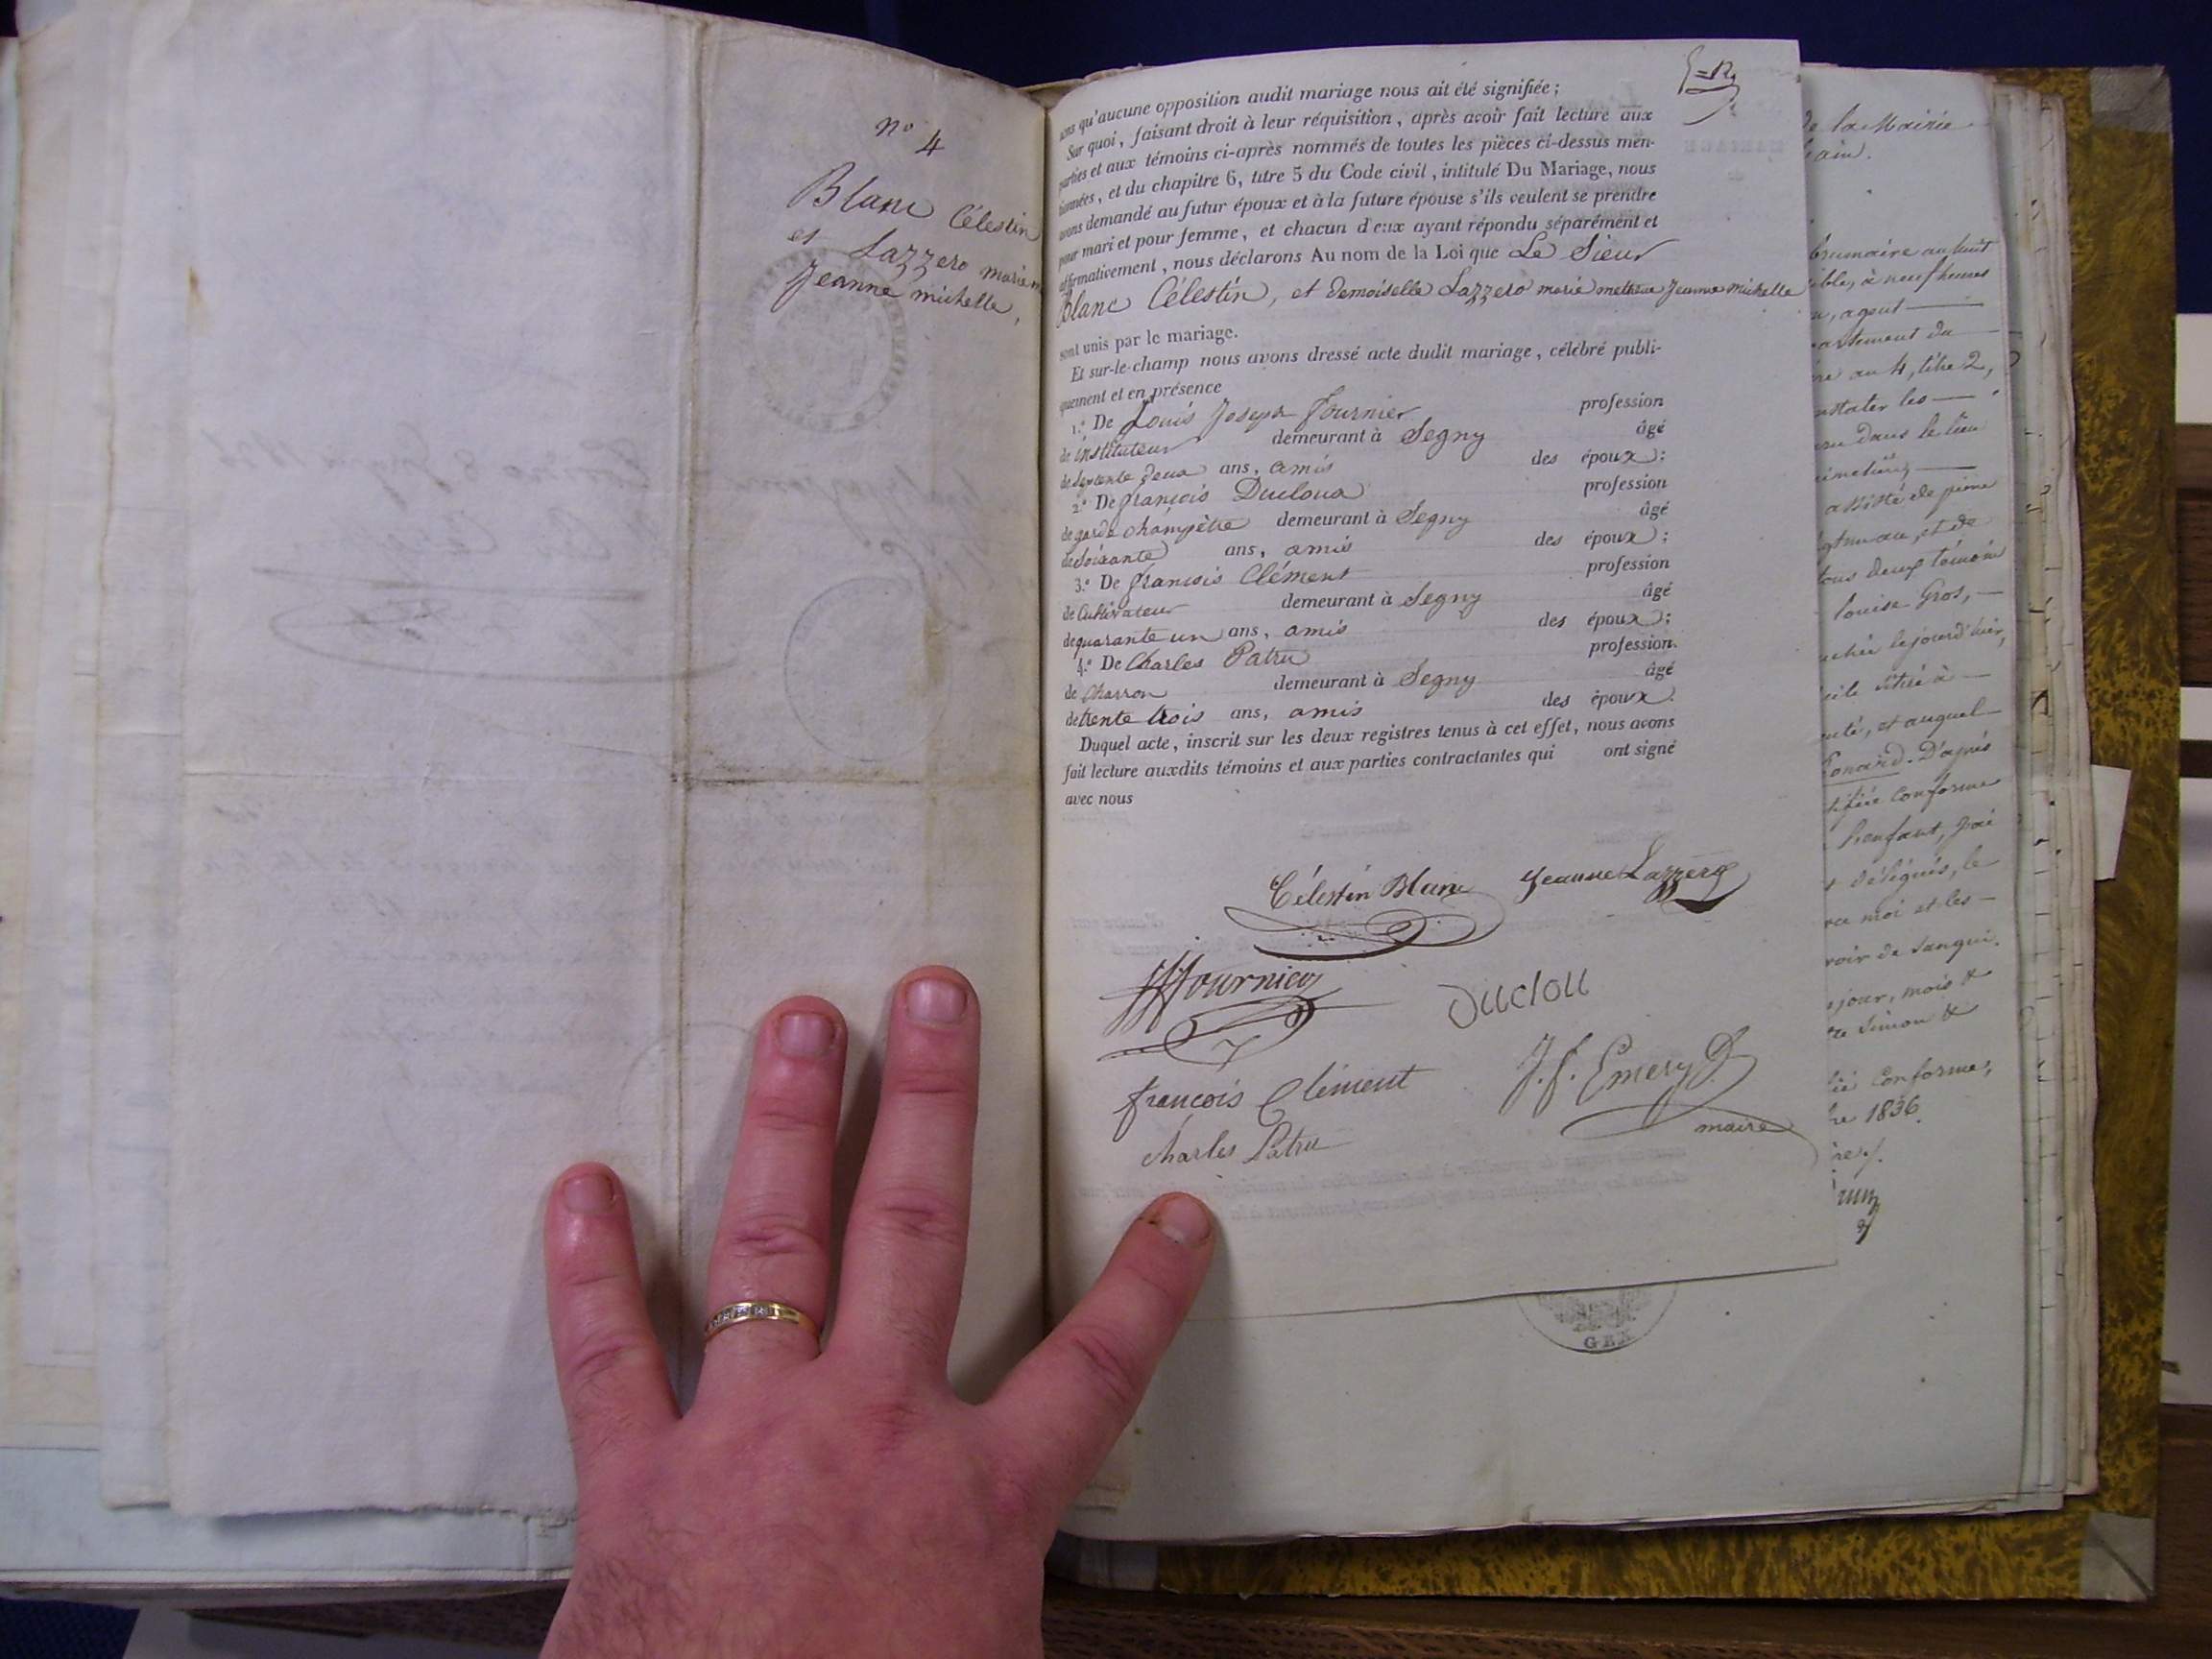 n° 4
Blanc Célestin
et Lazzero marie
Jeanne michelle,
qu'aucune opposition audit mariage nous ait été signifiée ;
Sur quoi, faisant droit à leur réquisition, après avoir fait lecture aux
parties et aux témoins ci-après nommés de toutes les pièces ci-dessus men-
tionnées, et du chapitre 6, titre 5 du Code civil, intitulé Du Mariage, nous
avons demandé au futur époux et à la future épouse s'ils veulent se prendre
pour mari et pour femme, et chacun d'eux ayant répondu séparément et
affirmativement, nous déclarons Au nom de la Loi que Le Sieur
Blanc Célestin, et demoiselle Lazzero marie Jeanne michelle
sont unis par le mariage.
Et sur-le-champ nous avons dressé acte dudit mariage, célébré publi-
quement et en présence
1.° De Louis Joseph Fournier profession
de instituteur demeurant à Segny âgé
de deux ans, amis des époux ;
2.° De françois Ducloux profession
de garde champètre demeurant à Segny âgé
de Soixante ans, amis des époux ;
3.° De françois Clément profession
de Cultivateur demeurant à Segny âgé
de quarante un ans, amis des époux ;
4.° De Charles Patru profession
de Charron demeurant à Segny âgé
de trente trois ans, amis des époux.
Duquel acte, inscrit sur les deux registres tenus à cet effet, nous avons
fait lecture auxdits témoins et aux parties contractantes qui ont signé
avec nous
Célestin Blanc Jeanne Lazzero
Fournier
Duclou
françois Clément J. f. Emery
maire
Charles Patru
GEX
de la Mairie
ain.
brumaire an huit
à neuf heures
, agent
artement du
an 4, titre 2,
les
dans le lieu
assisté de pierre
et de
tous deux témoins
louise Gros,
le jourd'hui,
située à
et auquel
D'après
conforme
l'enfant, j'ai
délégués, le
moi et les
de Sangui.
jour, mois &
Simon &
Conforme,
1836.